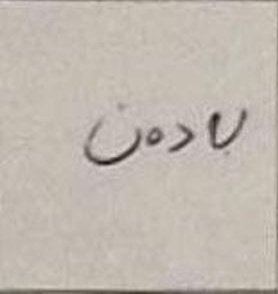 بادمن